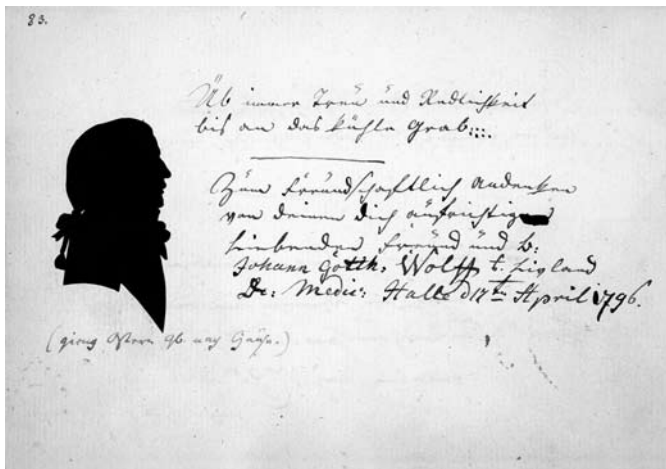 83.
Üb immer Treu und Redlichkeit
bis an das kühle Grab::::
Zum freundschaftlich Andenken
von deinem dich aufrichtig
liebenden Freund und B:
Johann Gotth: Wolff t. Livland
Dr: Medic: Halle d 17t April 1796.
(gieng Ostern 96 nach Hause.)